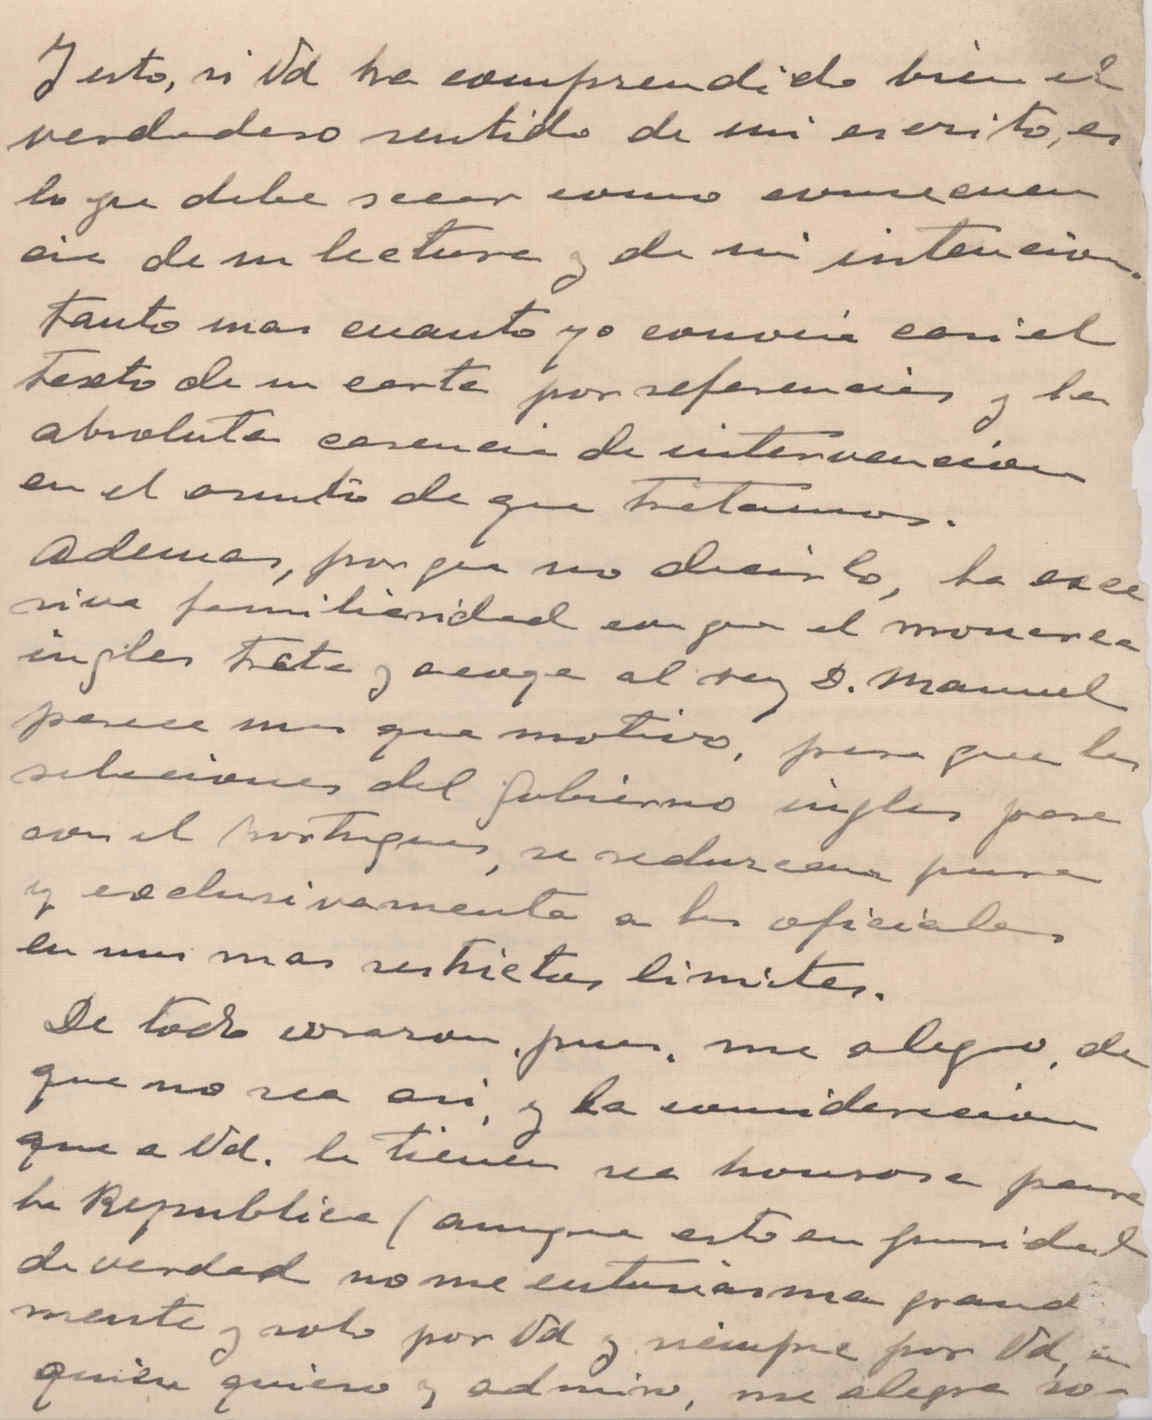 Y esto, si Vd ha comprendido bien el
verdadero sentido de mi escrito, es
lo que debe sacar como consecuen
cia de su lectura y de mi intencion.
Tanto mas cuanto yo conocia casi el
texto de su carta por referencias y la
absoluta carencia de intervencion
en el asunto de que tratamos.
Ademas, porque no decirlo, la exce
siva familiaridad con que el monarca
ingles trata y acoge al rey D. Manuel
parece mas que motivo, para que las
relaciones del Gobierno ingles para
con el Portugues, se reduzcan pura
y exclusivamente a las oficiales
en sus mas restrictos limites.
De todo corazon, pues, me alegro, de
que no sea asi, y la consideracion
que a Vd. le tienen sea honrosa para
la Republica (aunque esto en puridad
de verdad no me entusiasma grand
mente y solo por Vd y siempre por Vd, a
quien quiero y admiro, me alegra so-